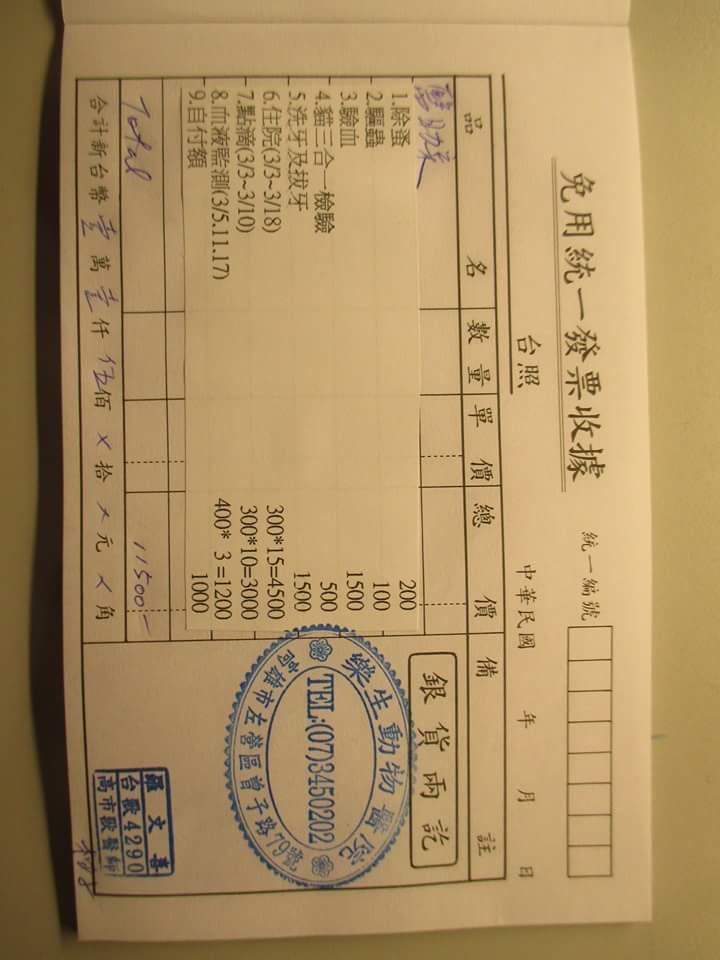 免用統一發票收據
統一編號
台照
中華民國 年 月 日
品名 數量 單價 總價 備註
1.除蚤 200
2.驅蟲 100
3.驗血 1500
4.貓三合一檢驗 500
5.洗牙及拔牙 1500
6.住院(3/3~3/18) 300*15=4500
7.點滴(3/3~3/10) 300*10=3000
8.血液監測(3/5.11.17) 400* 3 =1200
9.自付額 1000
Total 11500-
合計新台幣壹萬壹仟伍佰×拾×元×角
銀貨兩訖
樂生動物醫院
TEL:(07)3450202
高雄市左營區曾子路79號
羅文喜
台獸4290
高市獸醫師